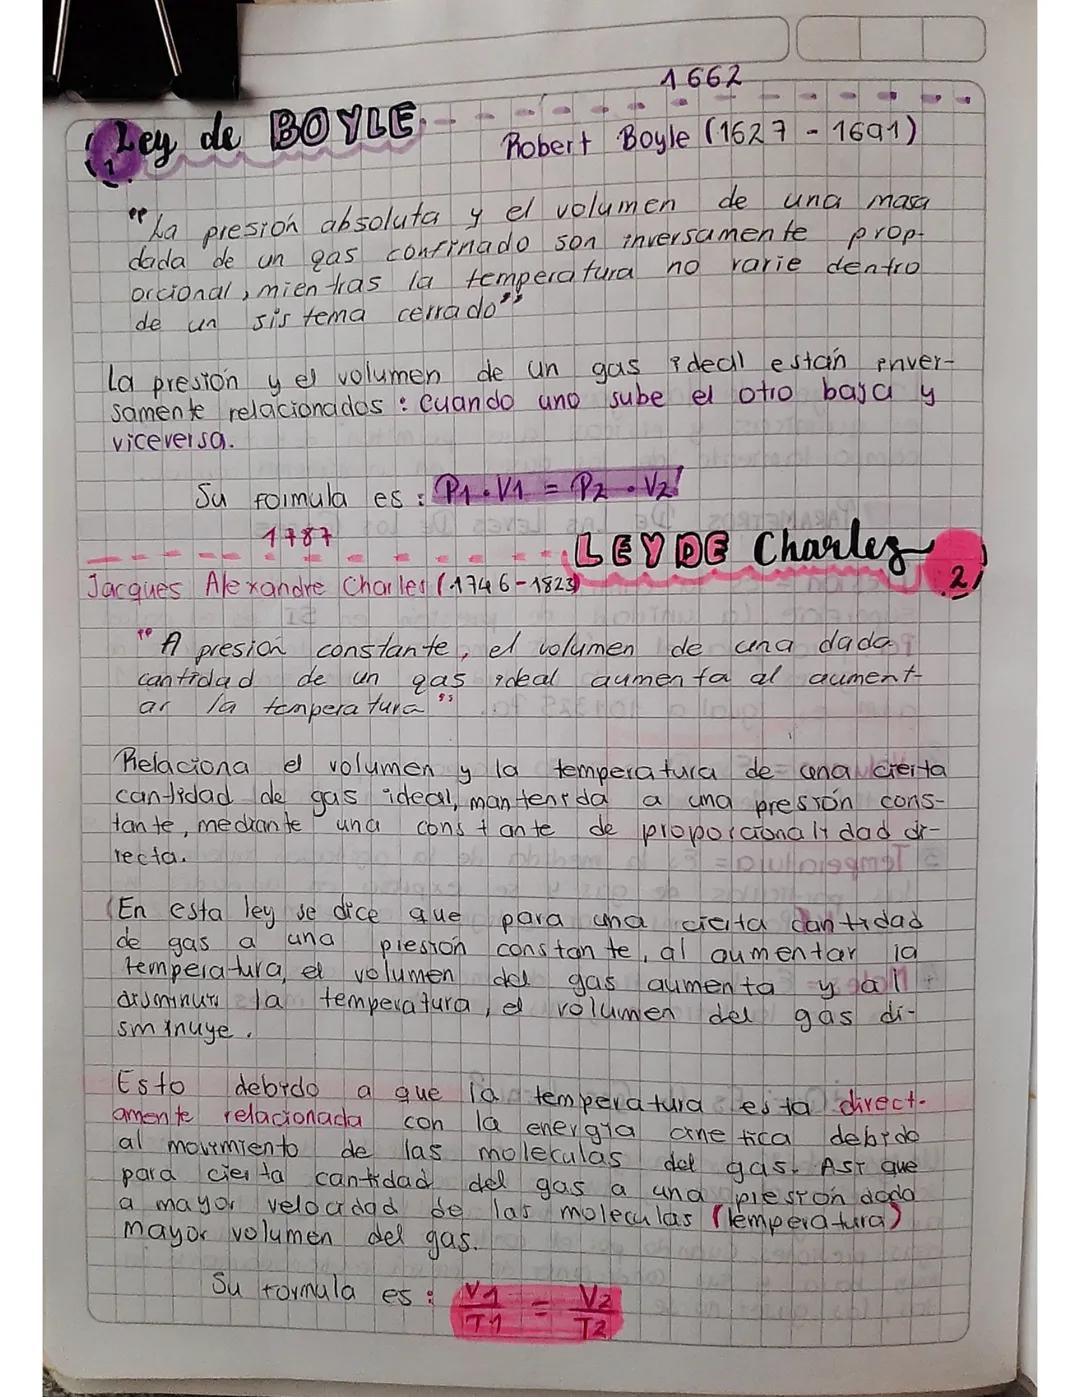 1662
Ley de BOYLE
1.
Robert Boyle (1627 - 1691)
"La presión absoluta y el volumen de una masa
dada de un gas confinado son inversamente prop-
orcional, mientras la temperatura no varie dentro
de un sistema cerrado"
La presión y el volumen de un gas ideal están enver-
samente relacionados : Cuando uno sube el otro baja y
viceversa.
Su formula es : P1 . V1 = P2 . V2
1787
LEY DE Charles
2
Jacques Alexandre Charles (1746-1823)
"A presión constante, el volumen de una dada
cantidad de un gas ideal aumenta al aument-
ar la temperatura"
Relaciona el volumen y la temperatura de una cierta
cantidad de gas ideal, mantenida a una presión cons-
tante, mediante una constante de proporcionalidad di-
recta.
En esta ley se dice que para una cierta cantidad
de gas a una presión constante, al aumentar la
temperatura, el volumen del gas aumenta y al
disminuir la temperatura, el volumen del gas di-
sminuye.
Esto debido a que la temperatura esta direct-
amente relacionada con la energía cinetica debido
al movimiento de las moleculas del gas. Asi que
para cierta cantidad del gas a una presión dada
a mayor velocidad de las moleculas (temperatura)
mayor volumen del gas.
Su formula es : V1/T1 = V2/T2